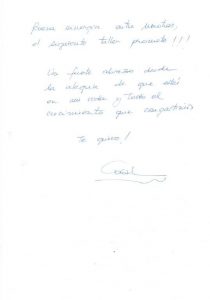 Buena energía entre nosotras,
el siguiente taller promete!!!
Un fuerte abrazo desde
la alegría de que estés
en mi vida y todo el
crecimiento que compartimos
Te quiero!